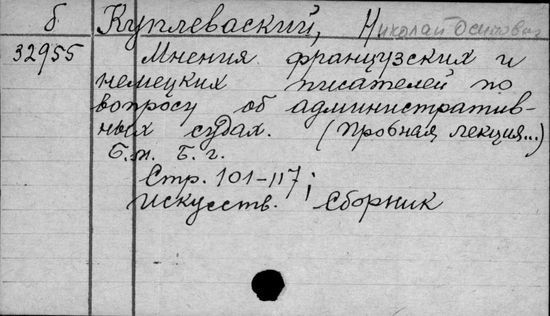 б Куплеваский, Николай Осипович
32955 Мнения французских и
немецких писателей по
вопросу об административ-
ных судах. (Пробная лекция...)
Б.м. Б.г.
Стр. 101-117;
искусств. сборник